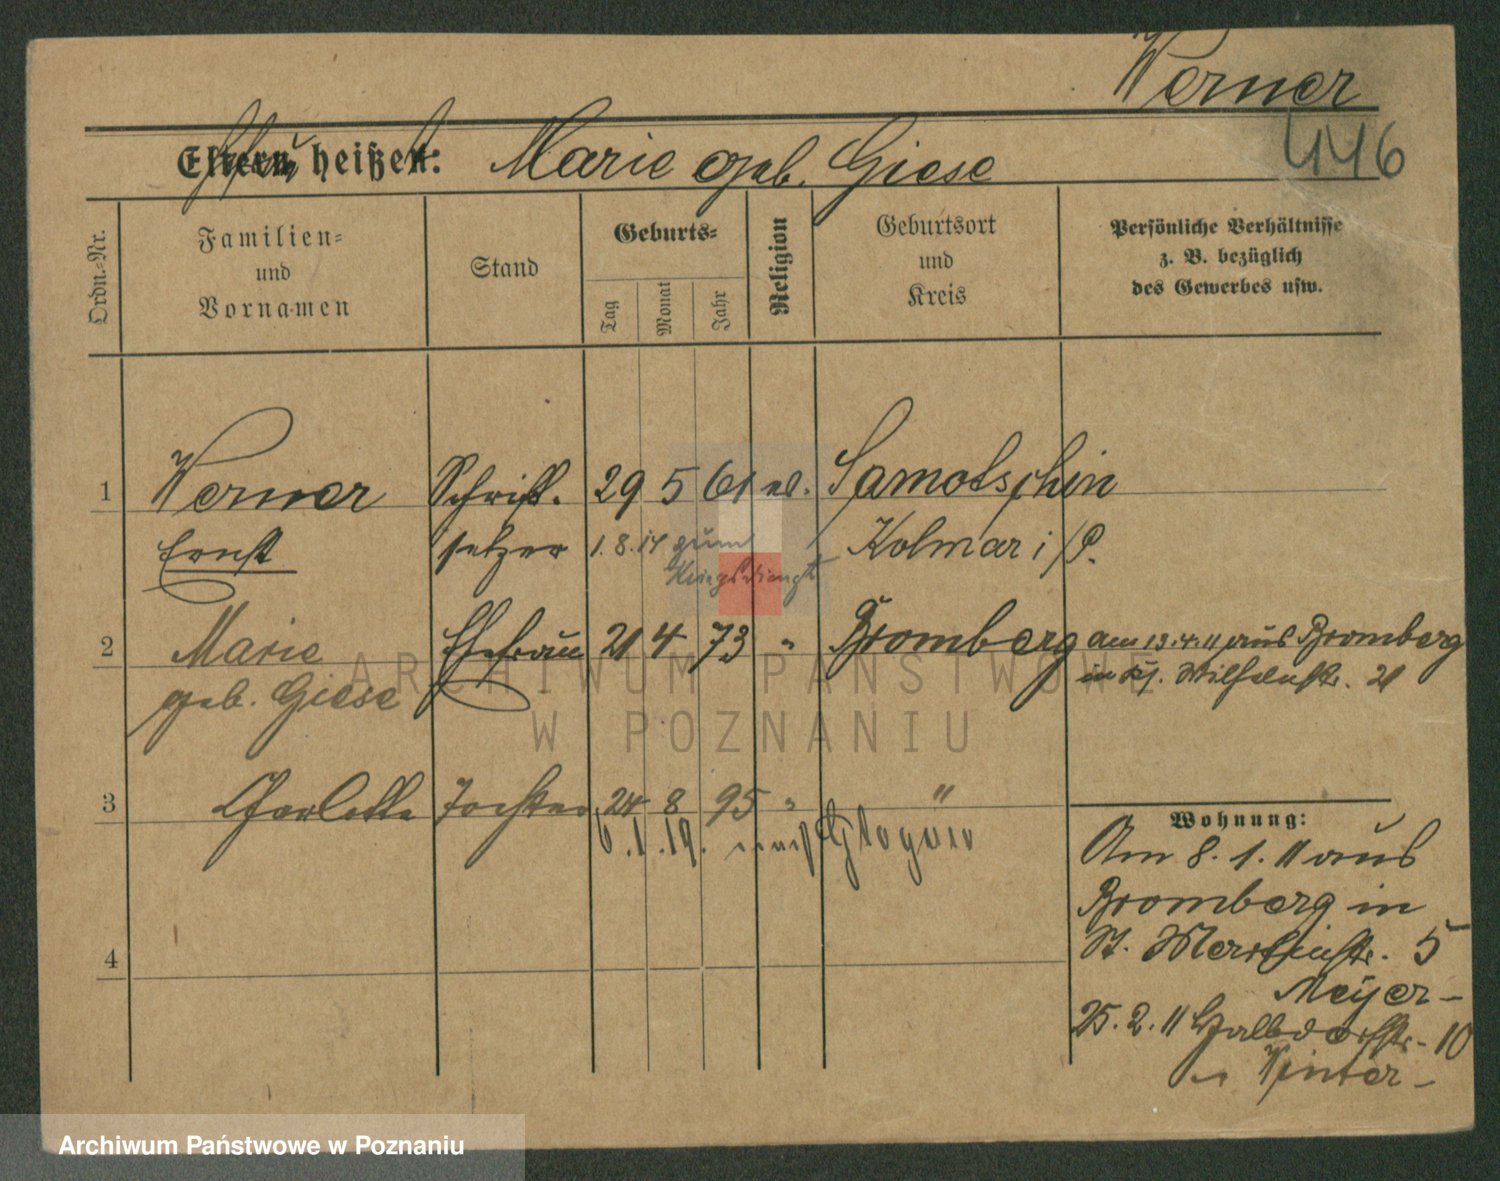 Werner
446
Eltern heißen: Marie geb. Giese
Ordn.-Nr.
Familien-
und
Vornamen
Stand
Geburts-
Tag
Monat
Jahr
Religion
Geburtsort
und
Kreis
Persönliche Verhältnisse
z. B. bezüglich
des Gewerbes usw.
1 Werner Schrift- 29 5 61 ev. Samotschin
Ernst setzer 1.8.14 zum Kolmar i/P.
Kriegsdienst
2 Marie Ehefrau 21 4 73 " Bromberg am 13.4.11 aus Bromberg
geb. Giese in Wilhelmstr. 21
3 Charlotte Tochter 24 8 95 " "
6.1.19. nach Glogau
4
Wohnung:
Am 8.1.11 aus
Bromberg in
St. Martinstr. 5
Meyer-
25.2.11 Halbdorfstr. 10
Winter-
ARCHIWUM PAŃSTWOWE
W POZNANIU
Archiwum Państwowe w Poznaniu